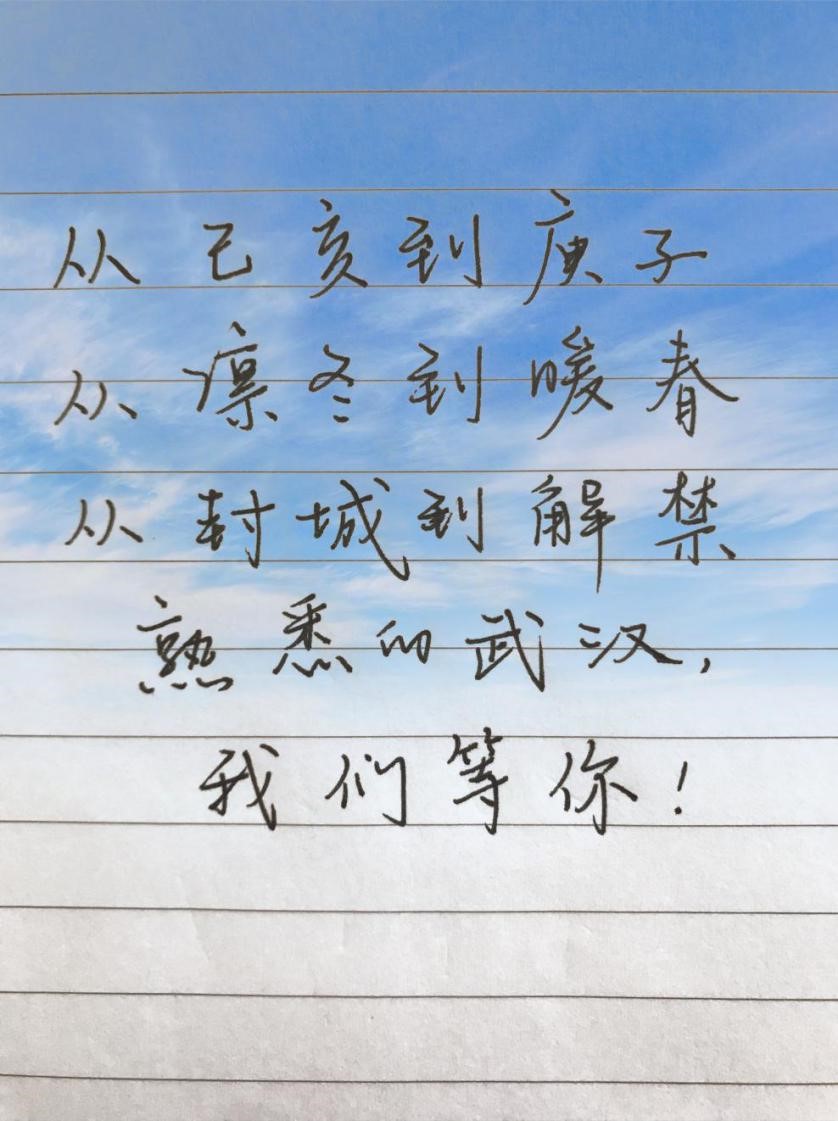 从己亥到庚子
从凛冬到暖春
从封城到解禁
熟悉的武汉,
我们等你!